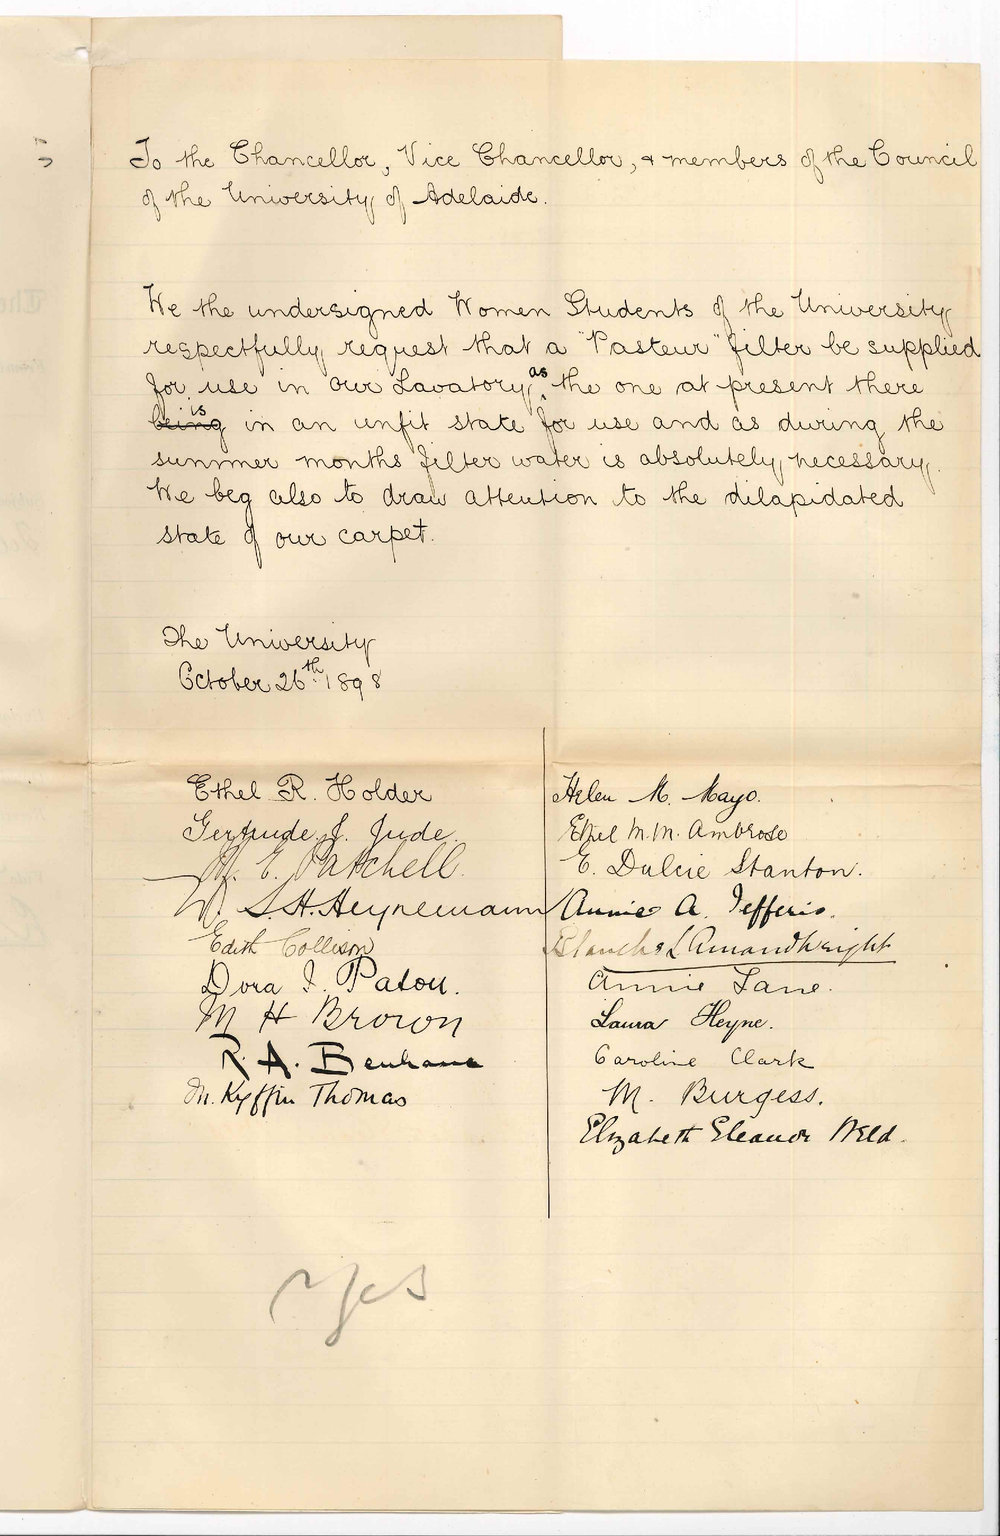 To the Chancellor, Vice Chancellor, & members of the Council
of the University of Adelaide.
We the undersigned Women Students of the University
respectfully request that a "Pasteur" filter be supplied
for use in our Lavatory, as the one at present there
being is in an unfit state for use and as during the
summer months filter water is absolutely necessary.
We beg also to draw attention to the dilapidated
state of our carpet.
The University
October 26th. 1898
Ethel R. Holder
Gertrude J. Jude.
M. E. Patchell.
W. S. H. Heynemann
Edith Collison
Dora I. Paton.
M H Brown
R. A. Benham
M. Kyffin Thomas
Helen M. Mayo.
Ethel M. M. Ambrose
E. Dulcie Stanton.
Annie A. Jefferis.
Blanche L Amand Wright
Annie Lane.
Laura Heyne.
Caroline Clark
M. Burgess.
Elizabeth Eleanor Weld.
Yes